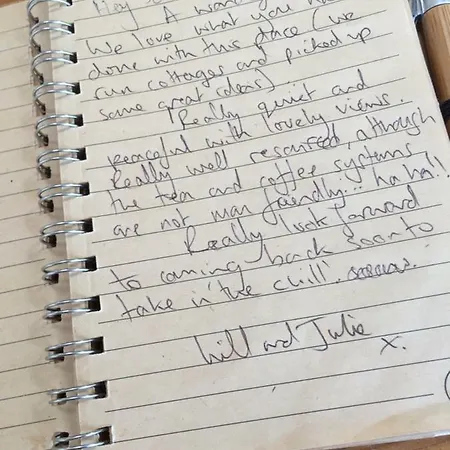 Hey
A wond
We love what you ha
done with this place (we
run cottages and picked up
some great ideas)
Really quiet and
peaceful with lovely views.
Really well resourced, although
the tea and coffee systems
are not man friendly... ha ha!!
Really look forward
to coming back soon to
take in 'the chill'.
and Julie
x.